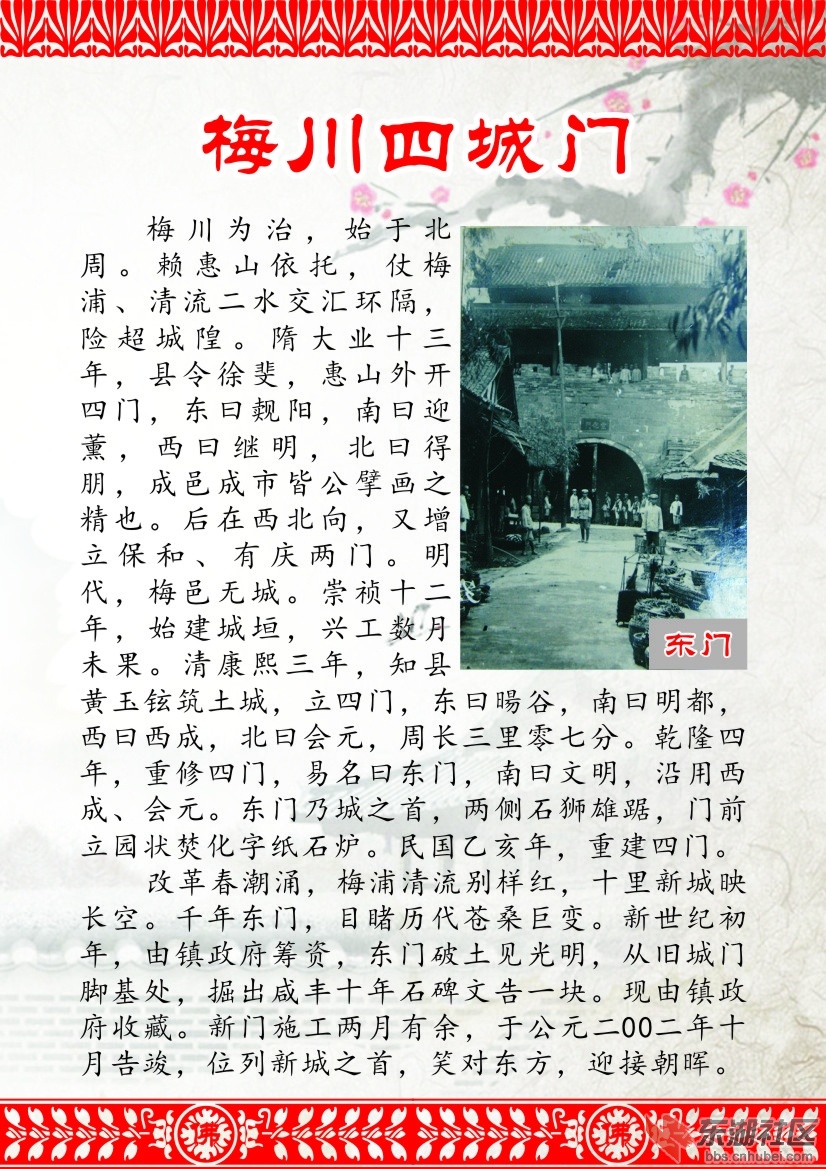 梅川四城门
梅川为治，始于北
周。赖惠山依托，仗梅
浦、清流二水交汇环隔，
险超城隍。隋大业十三
年，县令徐斐，惠山外开
四门，东曰觐阳，南曰迎
薰，西曰继明，北曰得
朋，成邑成市皆公擘画之
精也。后在西北向，又增
立保和、有庆两门。明
代，梅邑无城。崇祯十二
年，始建城垣，兴工数月
未果。清康熙三年，知县
黄玉铉筑土城，立四门，东曰暘谷，南曰明都，
西曰西成，北曰会元，周长三里零七分。乾隆四
年，重修四门，易名曰东门，南曰文明，沿用西
成、会元。东门乃城之首，两侧石狮雄踞，门前
立园状焚化字纸石炉。民国乙亥年，重建四门。
改革春潮涌，梅浦清流别样红，十里新城映
长空。千年东门，目睹历代苍桑巨变。新世纪初
年，由镇政府筹资，东门破土见光明，从旧城门
脚基处，掘出咸丰十年石碑文告一块。现由镇政
府收藏。新门施工两月有余，于公元二00二年十
月告竣，位列新城之首，笑对东方，迎接朝晖。
东门
佛
佛
东湖社区
bbs.cnhubei.com